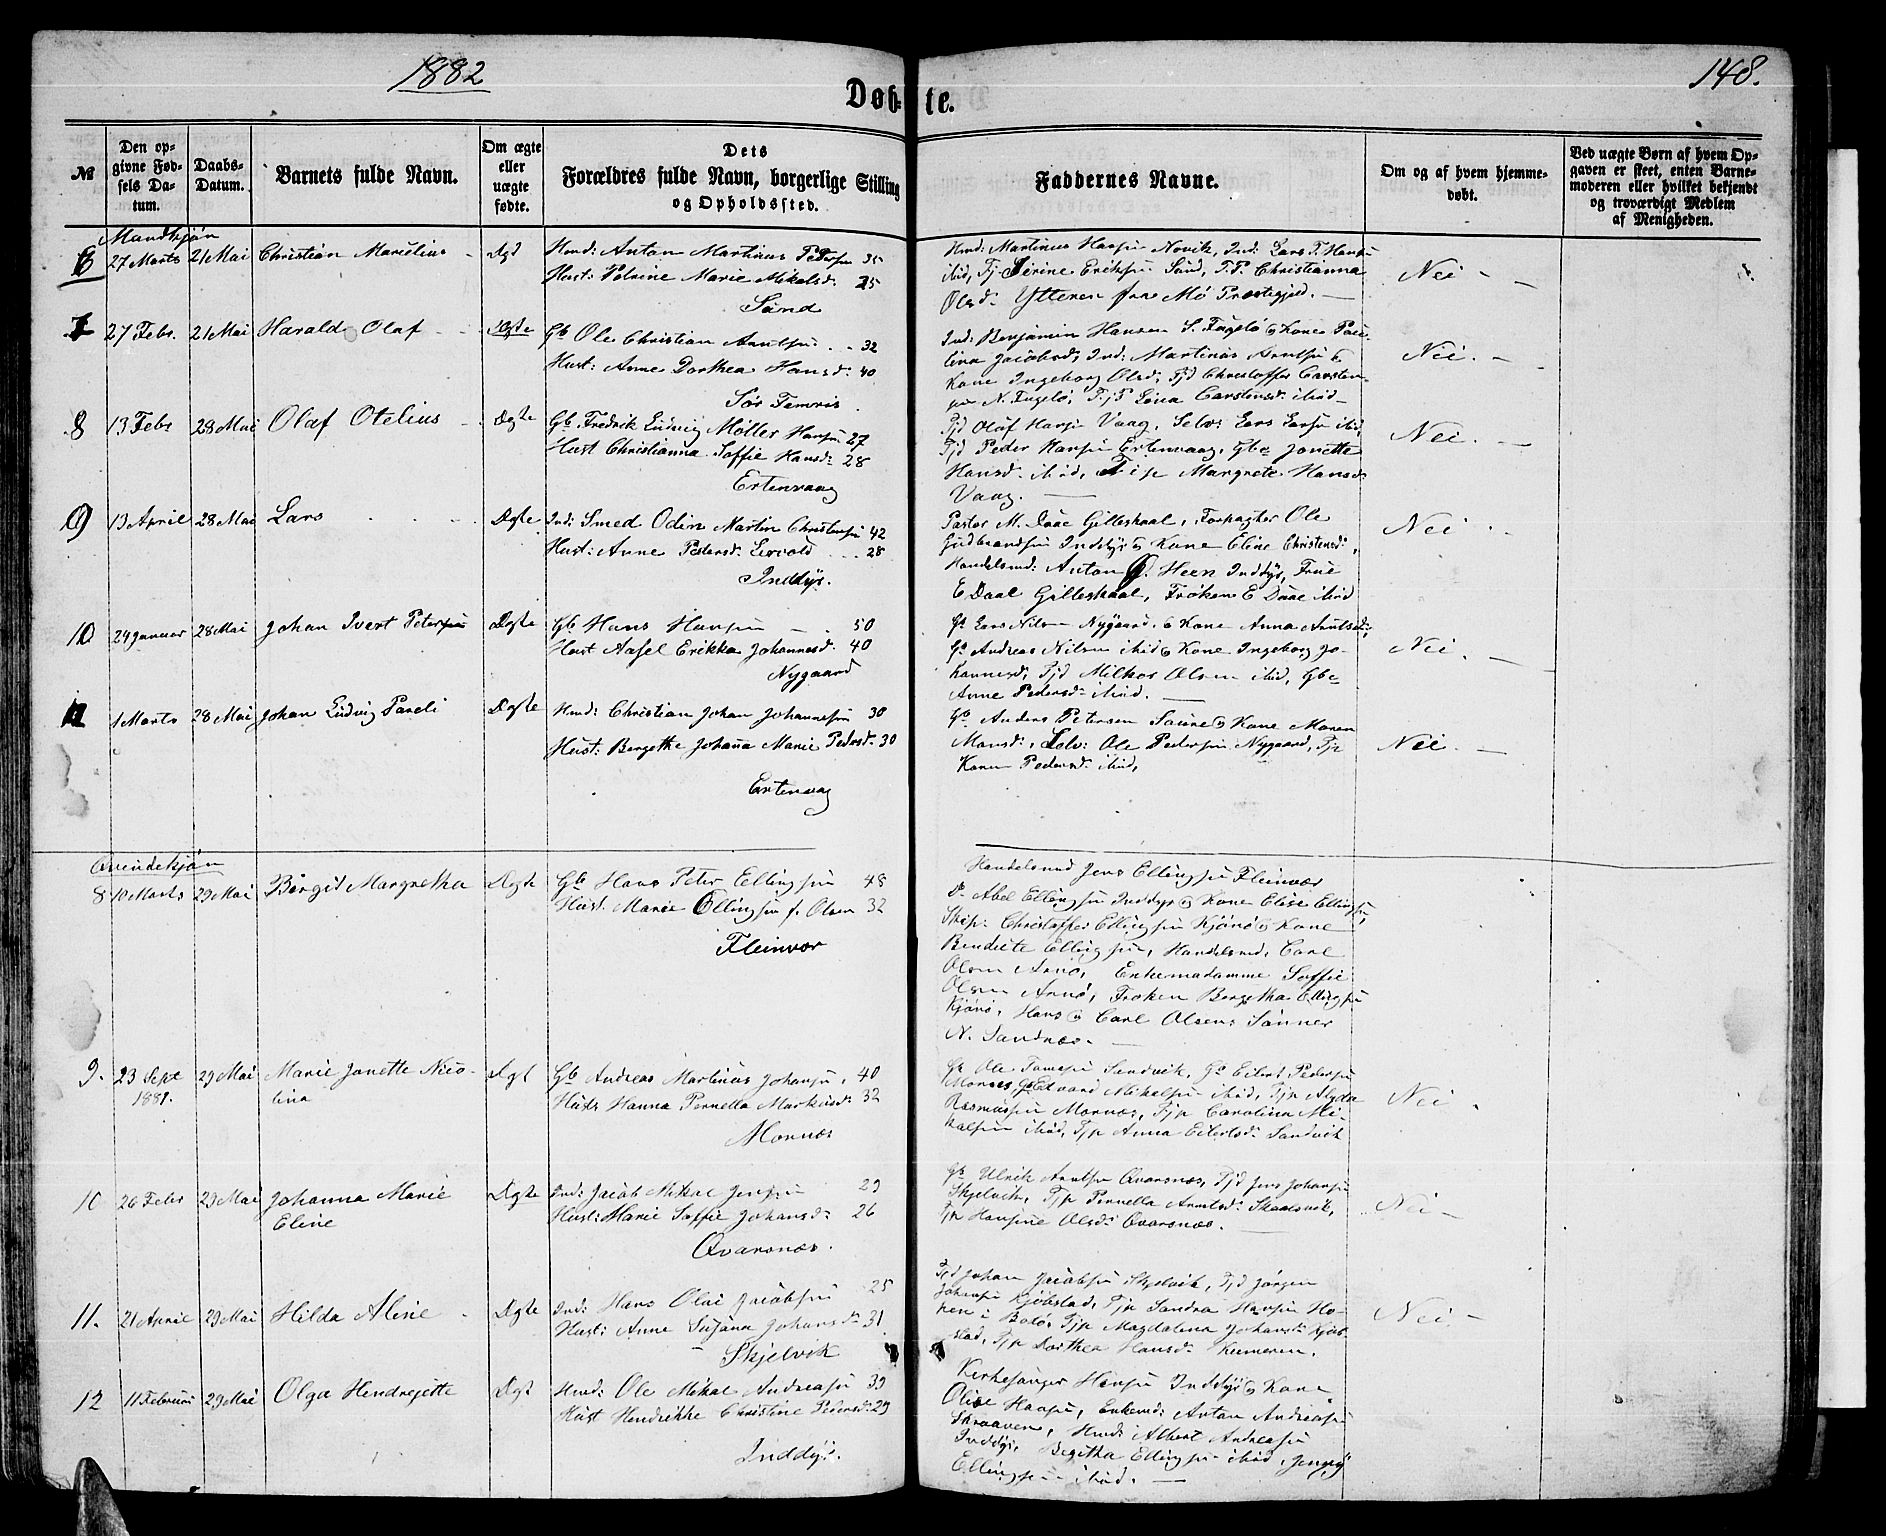 1882
148.
Døb-te.
№
Den op-
givne Fød-
sels Da-
tum.
Daabs-
Datum.
Barnets fulde Navn.
Om ægte
eller
uægte
fødte.
Dets
Forældres fulde Navn, borgerlige Stilling
og Opholdssted.
Faddernes Navne.
Om og af hvem hjemme-
døbt.
Ved uægte Børn af hvem Op-
gaven er skeet, enten Barne-
moderen eller hvilket bekjendt
og troværdigt Medlem
af Menigheden.
Mandkjøn
6 27 Marts 21 Mai Christian Marelius Ægt Hmd: Anton Martinus Pedersen 35
Hust: Marie Mikalsd: 25
Sund
Hmd: Martinus Hansen Novik, Ind: Lars T. Hansen
ibid, Tj Sirine Eriksen Sund, T.P. Christianna
Olsd. Ytteren Mo Præstegjeld.
Nei
7 27 Febr. 21 Mai Harald Olaf Ægte Gb Ole Christian Arntsen 32
Hust: Anne Dorthea Hansd: 40
Sør
Ind: Benjamin Hansen S. Fugelø & Kone Pau-
lina Jacobsd, Ind: Martinus Arntsen &
Kone Ingeborg Olsd, Tjd Christoffer Carsten-
sen N. Fugelø, T.j.P Lina Carstensd. ibid
Nei.
8 13 Febr 28 Mai Olaf Otelius Ægte Gb. Fredrik Ludvig Møller Hansen 27
Hust Christianna Soffie Hansd: 28
Ertenvaag
Tjd Olaf Hansen Vaag, Selvs Lars Larsen ibid,
Tjd Peder Hansen Ertenvaag, Gbe Jonette
Hansd. ibid, Margrete Hansd
Vaag.
Nei.
9 13 April 28 Mai Lars Ægte Ind: Smed Odin Martin Christensen 42
Hust: Anne Pedersd. 28
Inddyr.
Pastor M. Daae Gilleskaal, Forpagter Ole
Gudbrandsen Inddyr & Kone Eline Christensd.,
Handelsmd: Anton Heen Inddyr, Frue
E Daae Gilleskaal, Frøken E Daae ibid
Nei
10 24 Januar 28 Mai Johan Ivert Petersen Ægte Gb Hans Hansen 50
Hust Aasel Erikka Johannesd. 40
Nygaard
Gb Lars Nilsen Nygaard, & Kone Anna Arntsd.,
Gb Andreas Nilsen ibid & Kone Ingeborg Jo-
hannesd, Tjd Olsen ibid, Gbe
Anne Pedersd. ibid.
Nei.
11 1 Marts 28 Mai Johan Ludvig Pareli Ægte Hmd: Christian Johan Johannesen 30
Hust: Bergethe Johanna Marie Pedersd. 30
Ertenvaag
Gb Anders Petersen Saure & Kone Maren
Monsd., Selv: Ole Pedersen Nygaard, Tjp
Karen Pedersd. ibid,
Nei.
Qvindekjøn
8 10 Marts 29 Mai Birgit Margretha Ægte Gb Hans Peter Ellingsen 48
Hust. Marie Ellingsen f. Olsen 32
Fleinvær
Handelsmd Jens Ellingsen Fleinvær
Do Abel Ellingsen Inddyr & Kone Elise Ellingsen,
Skip: Christoffer Ellingsen Kjønø & Kone
Bendicte Ellingsen, Handelsmd. Carl
Olsen Arnø, Enkemadamme Soffie
Olsen Arnø, Frøken Bergetha Ellingsen
Kjønø, Hans & Carl Olsens Sønner
N. Sandnæs.
9. 23 Sept 29 Mai Marie Jonette Nico-
1881. lina
Ægt Gb Andreas Martinus Johansen, 40
Hust Hanna Pernella Markusd. 32
Mornæs
Gb Ole Tomasen Sandvik, Gb Eilert Pedersen
Mornæs, Gb Edvard Mikalsen ibid, Tjp Alyda
Rasmussen Mornæs, Tjp Carolina Mi-
kalsen ibid, Tjp Anna Eilertsd. Sandvik
Nei
10 26 Febr 29 Mai Johanna Marie
Eline
Ægte Ind: Jacob Mikal Jensen 29
Hust: Marie Soffie Johansd. 26
Qvarsnæs.
Gb Ulrik Arntsen Qvarsnæs, Tjd Jens Johansen
Skjelvik, Tjp Pernella Arntsd.
Tjp Hansine Olsd. Qvarsnæs.
Nei
11. 21 April 29 Mai Hilda Aline Ægte Ind: Hans Olai Jacobsen 25
Hust: Anne Susana Johansd. 31
Skjelvik
Tjd Johan Jacobsen Skjelvik, Tjd Jørgen
Johansen Kjøbstad, Tjp Sandra Hansen Ho-
pen i Bodø, Tjp Magdalena Johansd. Kjøb-
stad, Tjp Dorthea Hansd.
Nei.
12 11 Februar 29 Mai Olga Hendrejette Ægt Hmd: Ole Mikal Andreasen 39
Hust Hendrikke Christine Pedersd. 29
Inddyr.
Kirkesanger Hansen Inddyr & Kone
Olise Hansen, Enkemd: Anton Andreasen
Skraaven, Hmd: Albert Andreasen
Inddyr, Begitha Ellingsen ibid, Jenny
Ellingsen ibid.